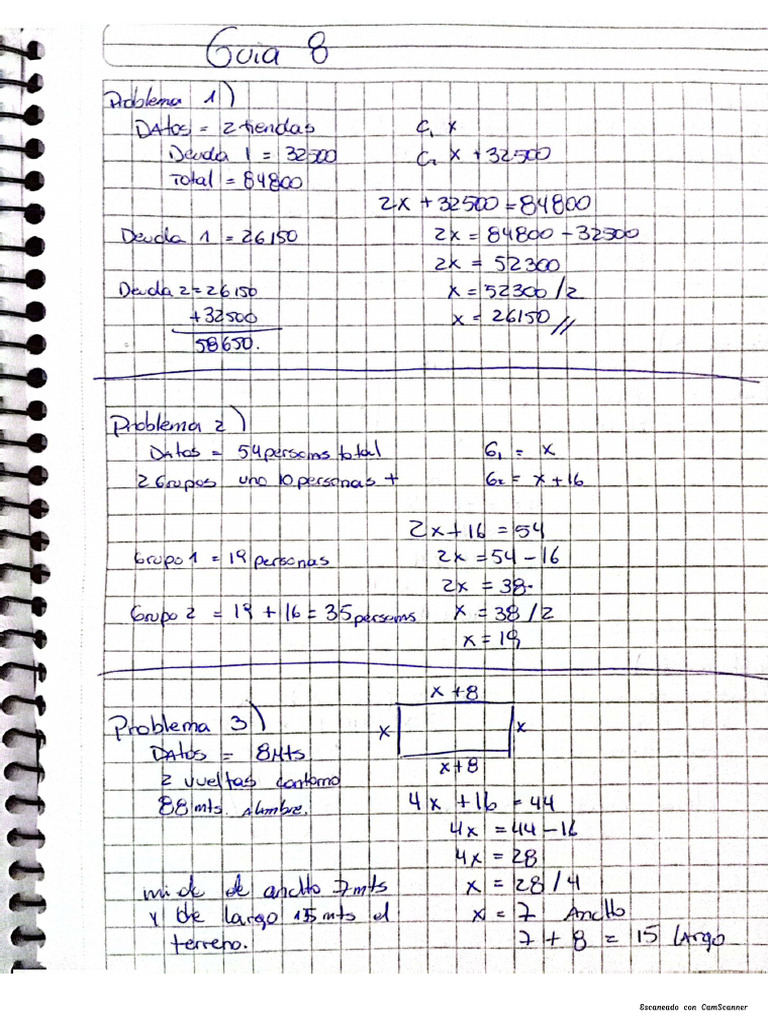 Guia 8
Problema 1)
DAtos = 2 tiendas
Deuda 1 = 32500
Total = 84800
C₁ x
C₂ x + 32500
2x + 32500 = 84800
2x = 84800 - 32500
2x = 52300
x = 52300/2
x = 26150 //
Deuda 1 = 26150
Deuda 2 = 26150
+ 32500
58650.
Problema 2)
DAtos = 54 personas total
2 Grupos uno 10 personas +
G₁ = x
G₂ = x + 16
2x + 16 = 54
2x = 54 - 16
2x = 38.
x = 38/2
x = 19
Grupo 1 = 19 personas
Grupo 2 = 19 + 16 = 35 personas
Problema 3)
DAtos = 8Mts
2 vueltas contorno
88 mts. Alambre.
x + 8
x
x
x + 8
4x + 16 = 44
4x = 44 - 16
4x = 28
x = 28/4
x = 7 Ancho
7 + 8 = 15 Largo
mide de ancho 7 mts
y de largo 15 mts el
terreno.
Escaneado con CamScanner